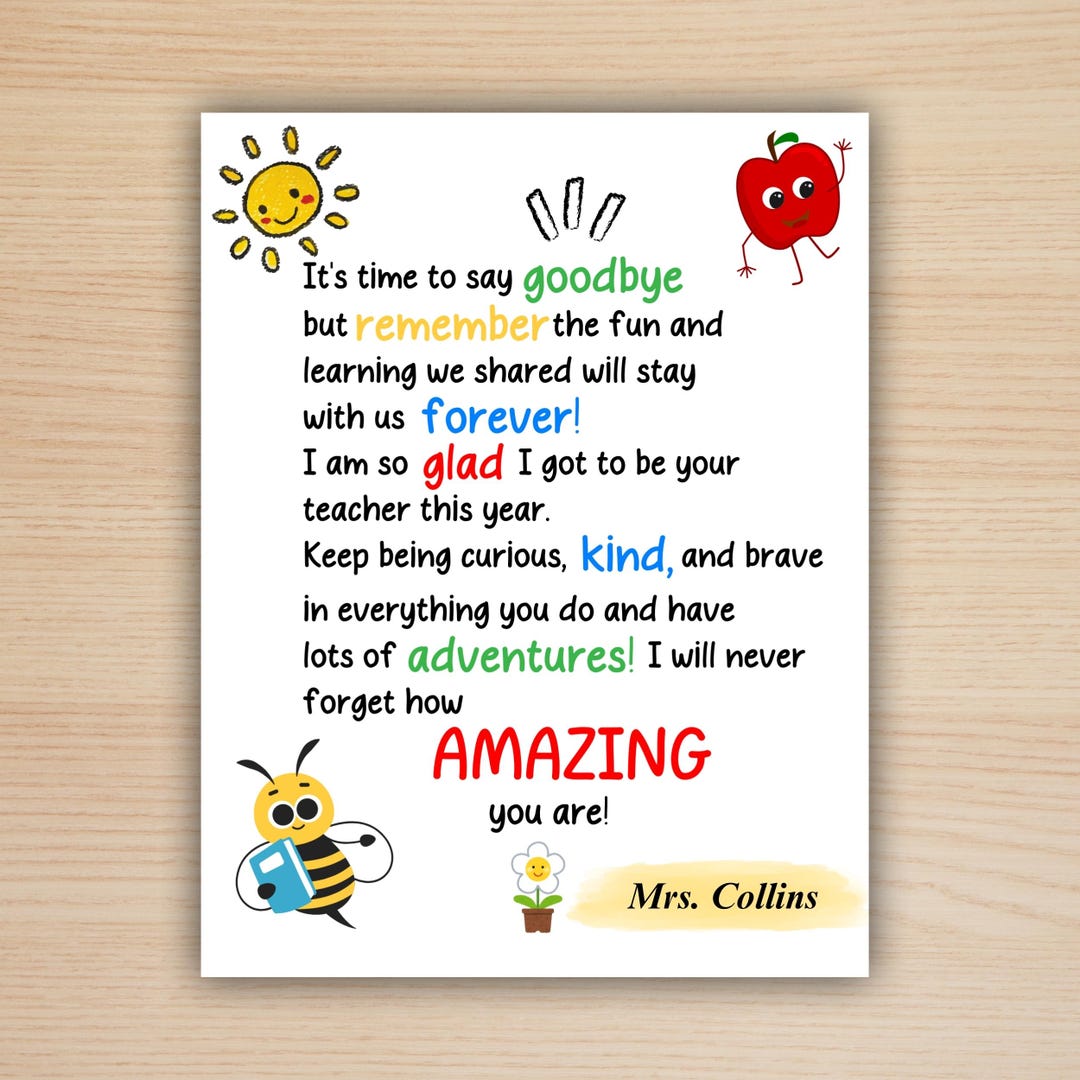 It's time to say goodbye
but remember the fun and
learning we shared will stay
with us forever!
I am so glad I got to be your
teacher this year.
Keep being curious, kind, and brave
in everything you do and have
lots of adventures! I will never
forget how
AMAZING
you are!
Mrs. Collins